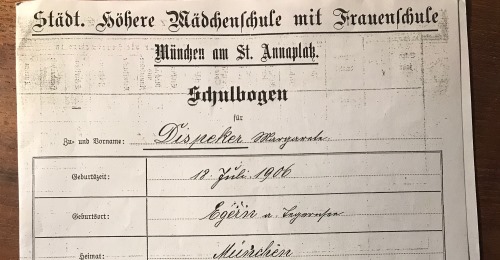 Städt. Höhere Mädchenschule mit Frauenschule
München am St. Annaplatz.
Schulbogen
für
Zu- und Vorname: Dispeker Margarete
Geburtszeit: 18. Juli 1906
Geburtsort: Egern a. Tegernsee
Heimat: München